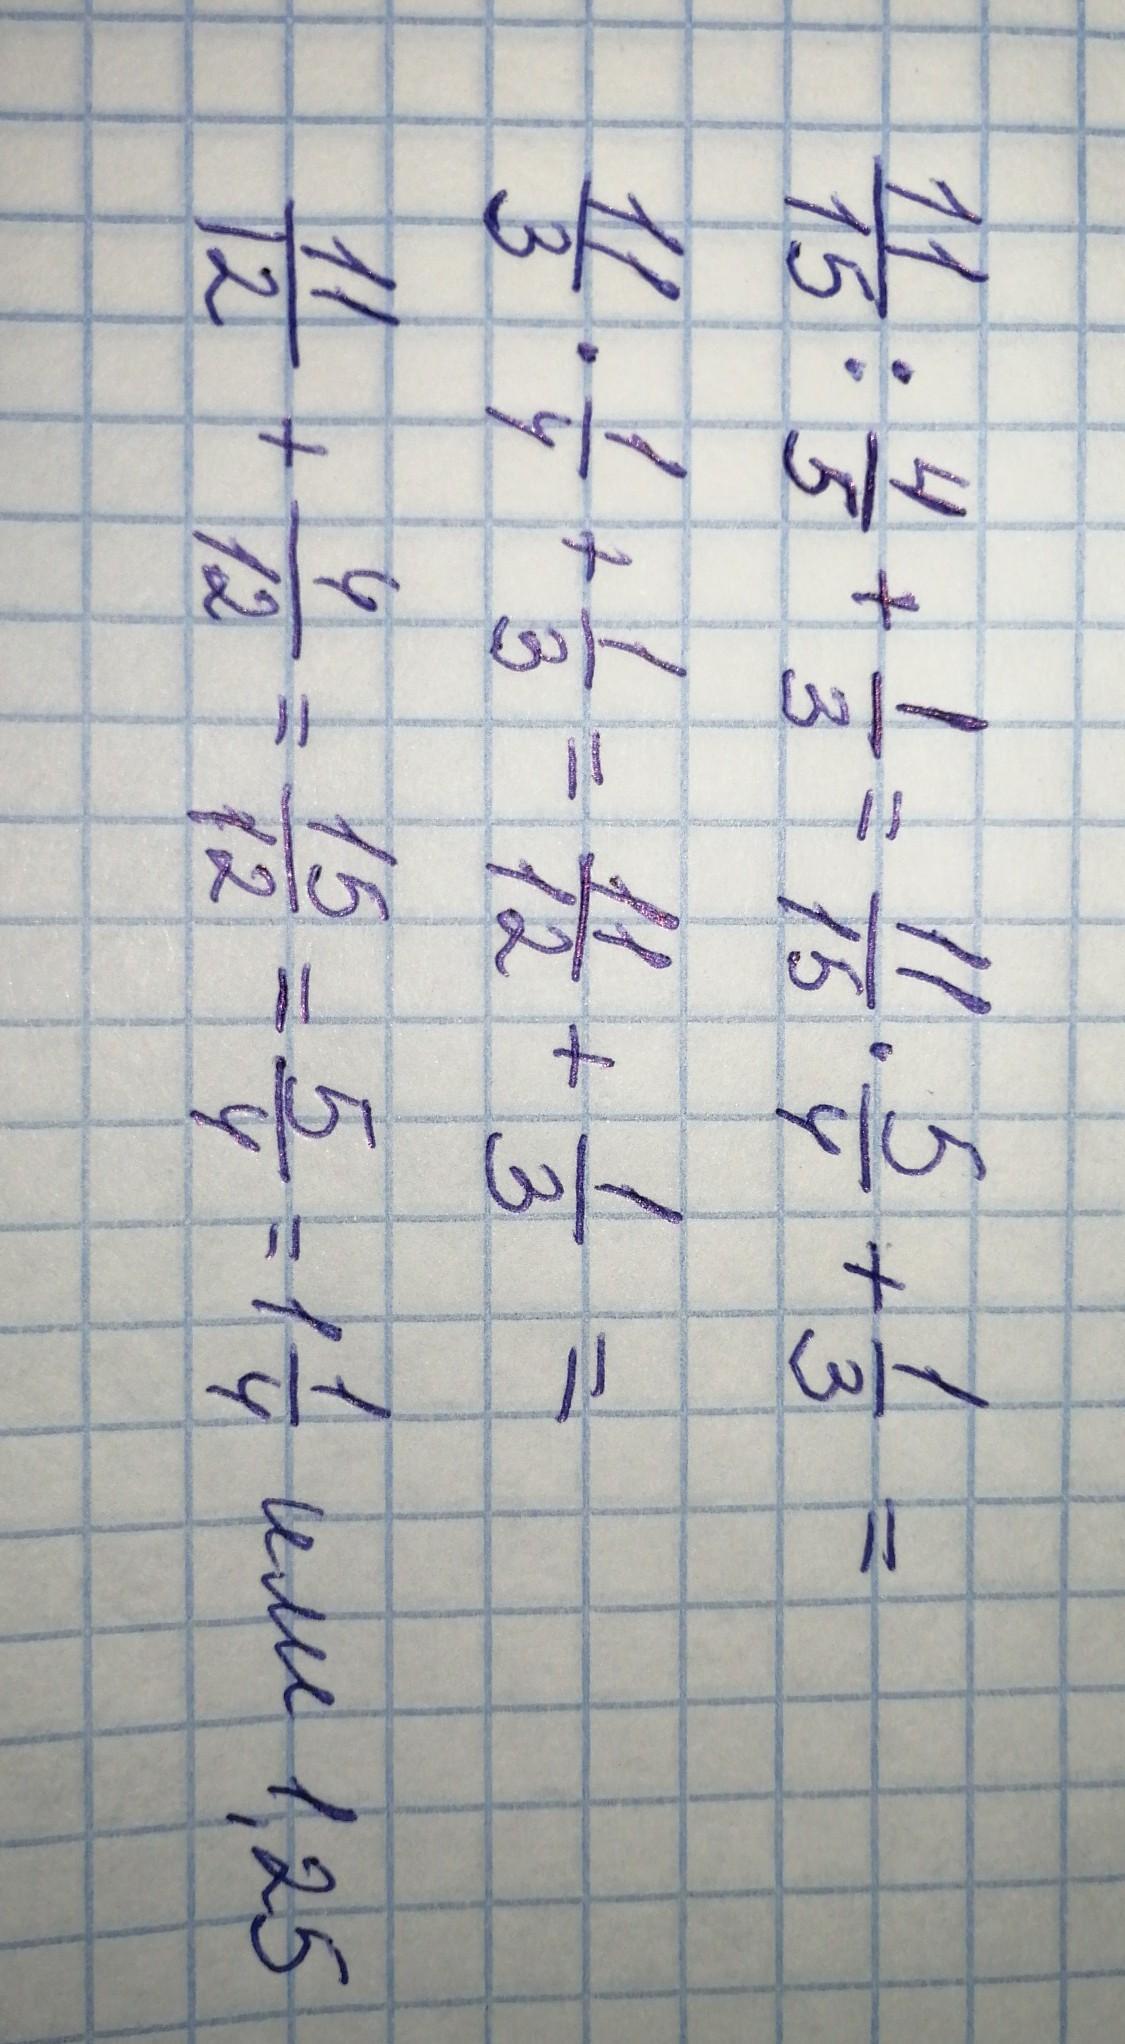 11/15 : 4/5 + 1/3 = 11/15 · 5/4 + 1/3 =
11/3 · 1/4 + 1/3 = 11/12 + 1/3 =
11/12 + 4/12 = 15/12 = 5/4 = 1 1/4 или 1,25